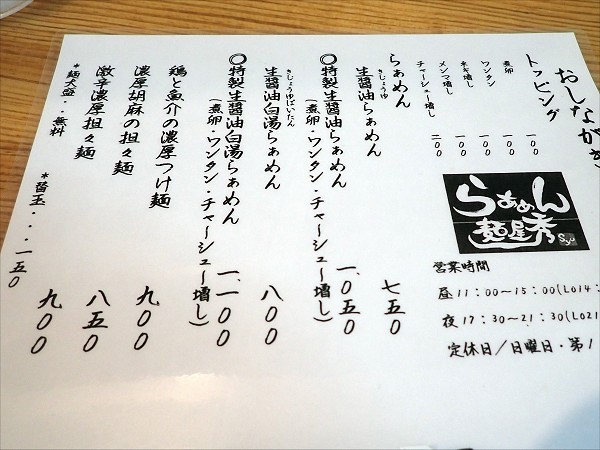 おしながき
トッピング
煮卵 一〇〇
ワンタン 一〇〇
ネギ増し 一〇〇
メンマ増し 一〇〇
チャーシュー増し 二〇〇
らぁめん
きじょうゆ
生醤油らぁめん 七五〇
◎特製生醤油らぁめん 一、〇五〇
(煮卵・ワンタン・チャーシュー増し)
きじょうゆぱいたん
生醤油白湯らぁめん 八〇〇
◎特製生醤油白湯らぁめん 一、一〇〇
(煮卵・ワンタン・チャーシュー増し)
鶏と魚介の濃厚つけ麺 九〇〇
濃厚胡麻の担々麺 八五〇
激辛濃厚担々麺 九〇〇
*麺大盛・・無料 *替玉・・・一五〇
らぁめん
麺屋秀
Syu
営業時間
昼11:00~15:00(LO14:
夜17:30~21:30(LO21
定休日/日曜日・第1